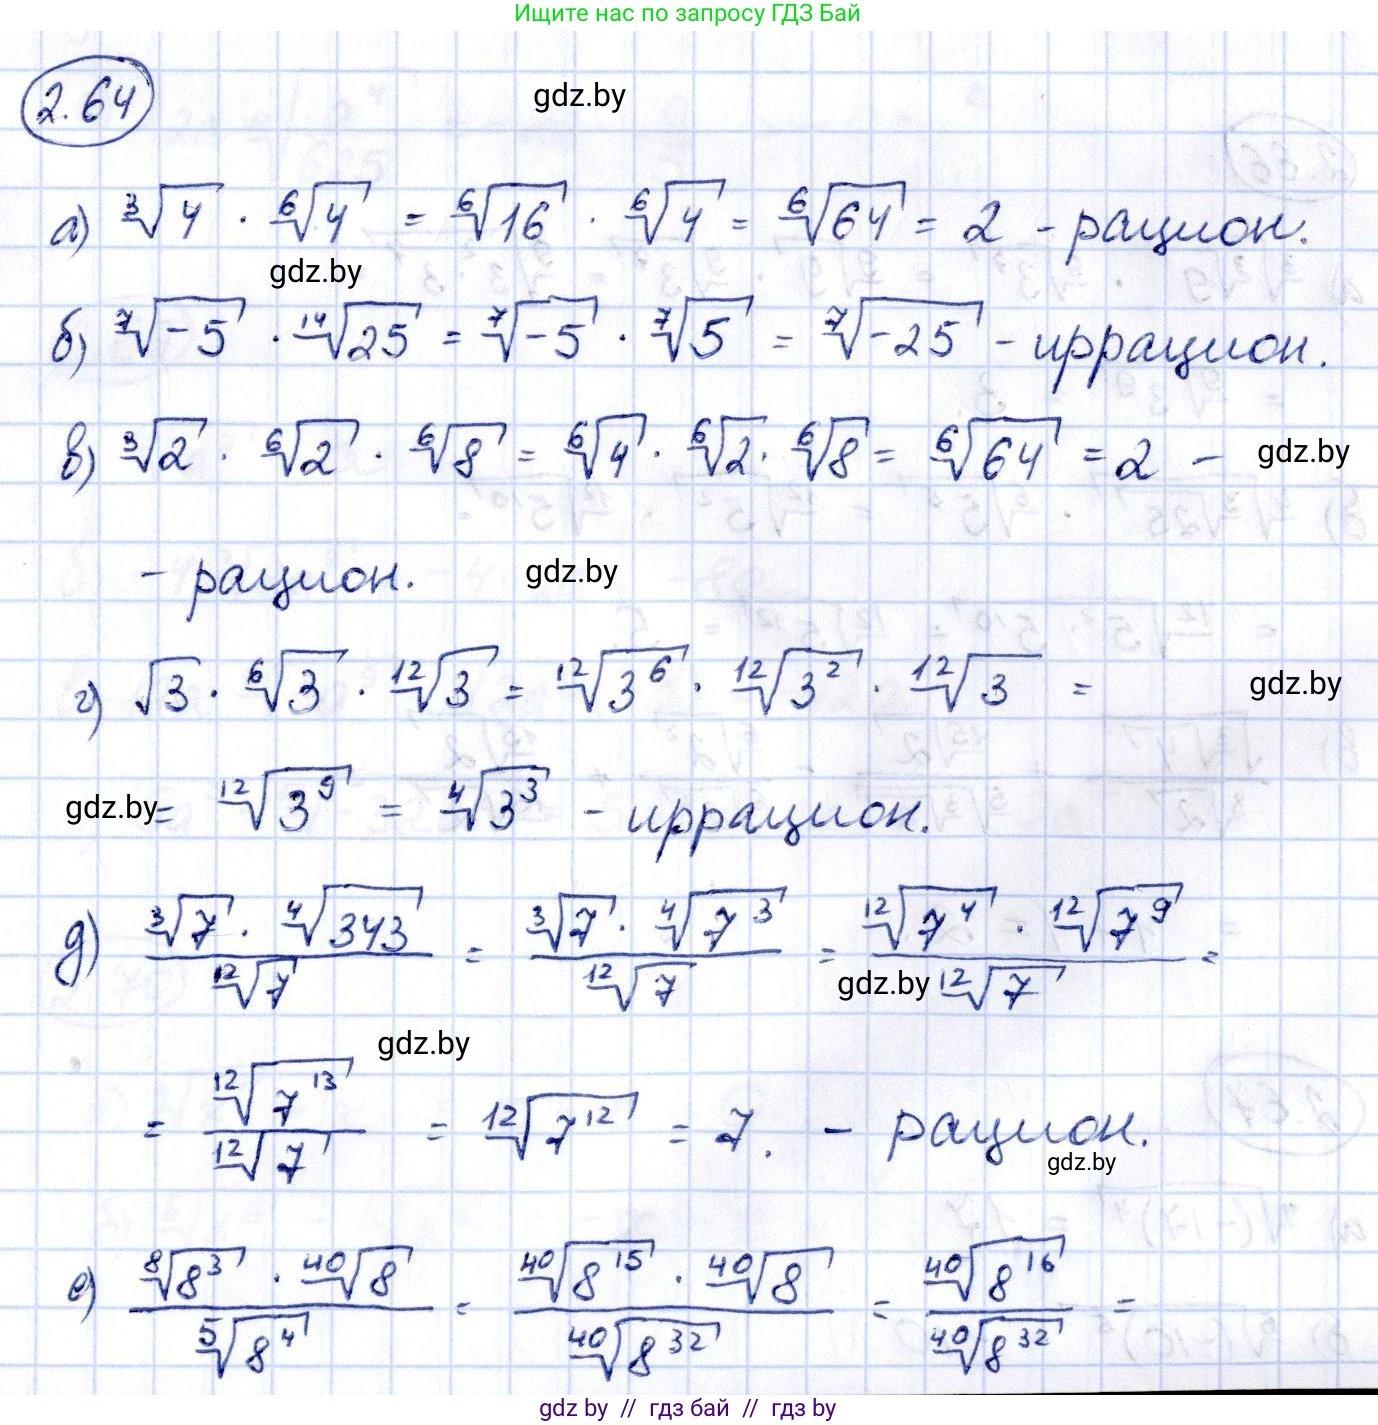 Ищите нас по запросу ГДЗ Бай
2.64
gdz.by
а) ∛4 · ⁶√4 = ⁶√16 · ⁶√4 = ⁶√64 = 2 - рацион.
gdz.by
б) ⁷√-5 · ¹⁴√25 = ⁷√-5 · ⁷√5 = ⁷√-25 - иррацион.
в) ³√2 · ⁶√2 · ⁶√8 = ⁶√4 · ⁶√2 · ⁶√8 = ⁶√64 = 2 - gdz.by
- рацион. gdz.by
г) √3 · ⁶√3 · ¹²√3 = ¹²√3⁶ · ¹²√3² · ¹²√3 = gdz.by
gdz.by = ¹²√3⁹ = ⁴√3³ - иррацион.
д) (³√7 · ⁴√343)/(¹²√7) = (³√7 · ⁴√7³)/(¹²√7) = (¹²√7⁴ · ¹²√7⁹)/(¹²√7) =
gdz.by
gdz.by
= (¹²√7¹³)/(¹²√7) = ¹²√7¹² = 7. - рацион.
gdz.by
е) (⁸√8³ · ⁴⁰√8)/(⁵√8⁴) = (⁴⁰√8¹⁵ · ⁴⁰√8)/(⁴⁰√8³²) = (⁴⁰√8¹⁶)/(⁴⁰√8³²) =
gdz by // гдз бай // гдз by